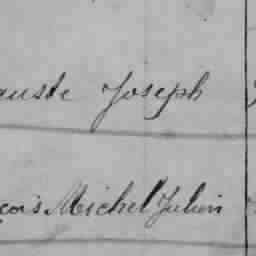 auste Joseph
çois Michel Julien